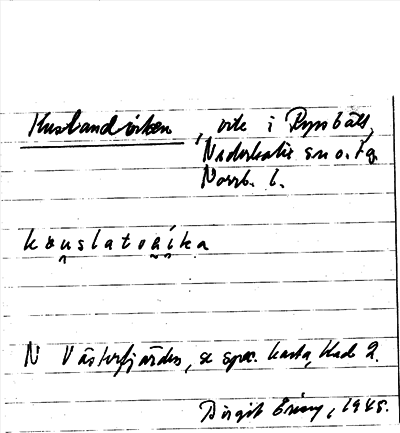 Kuslandviken, vik i Rynbäck,
Nederkalix sn o. tg
Norrb. l.
kuslatovíka
N Västerfjärden, se spec. karta, blad 2.
Birgit , 1945.